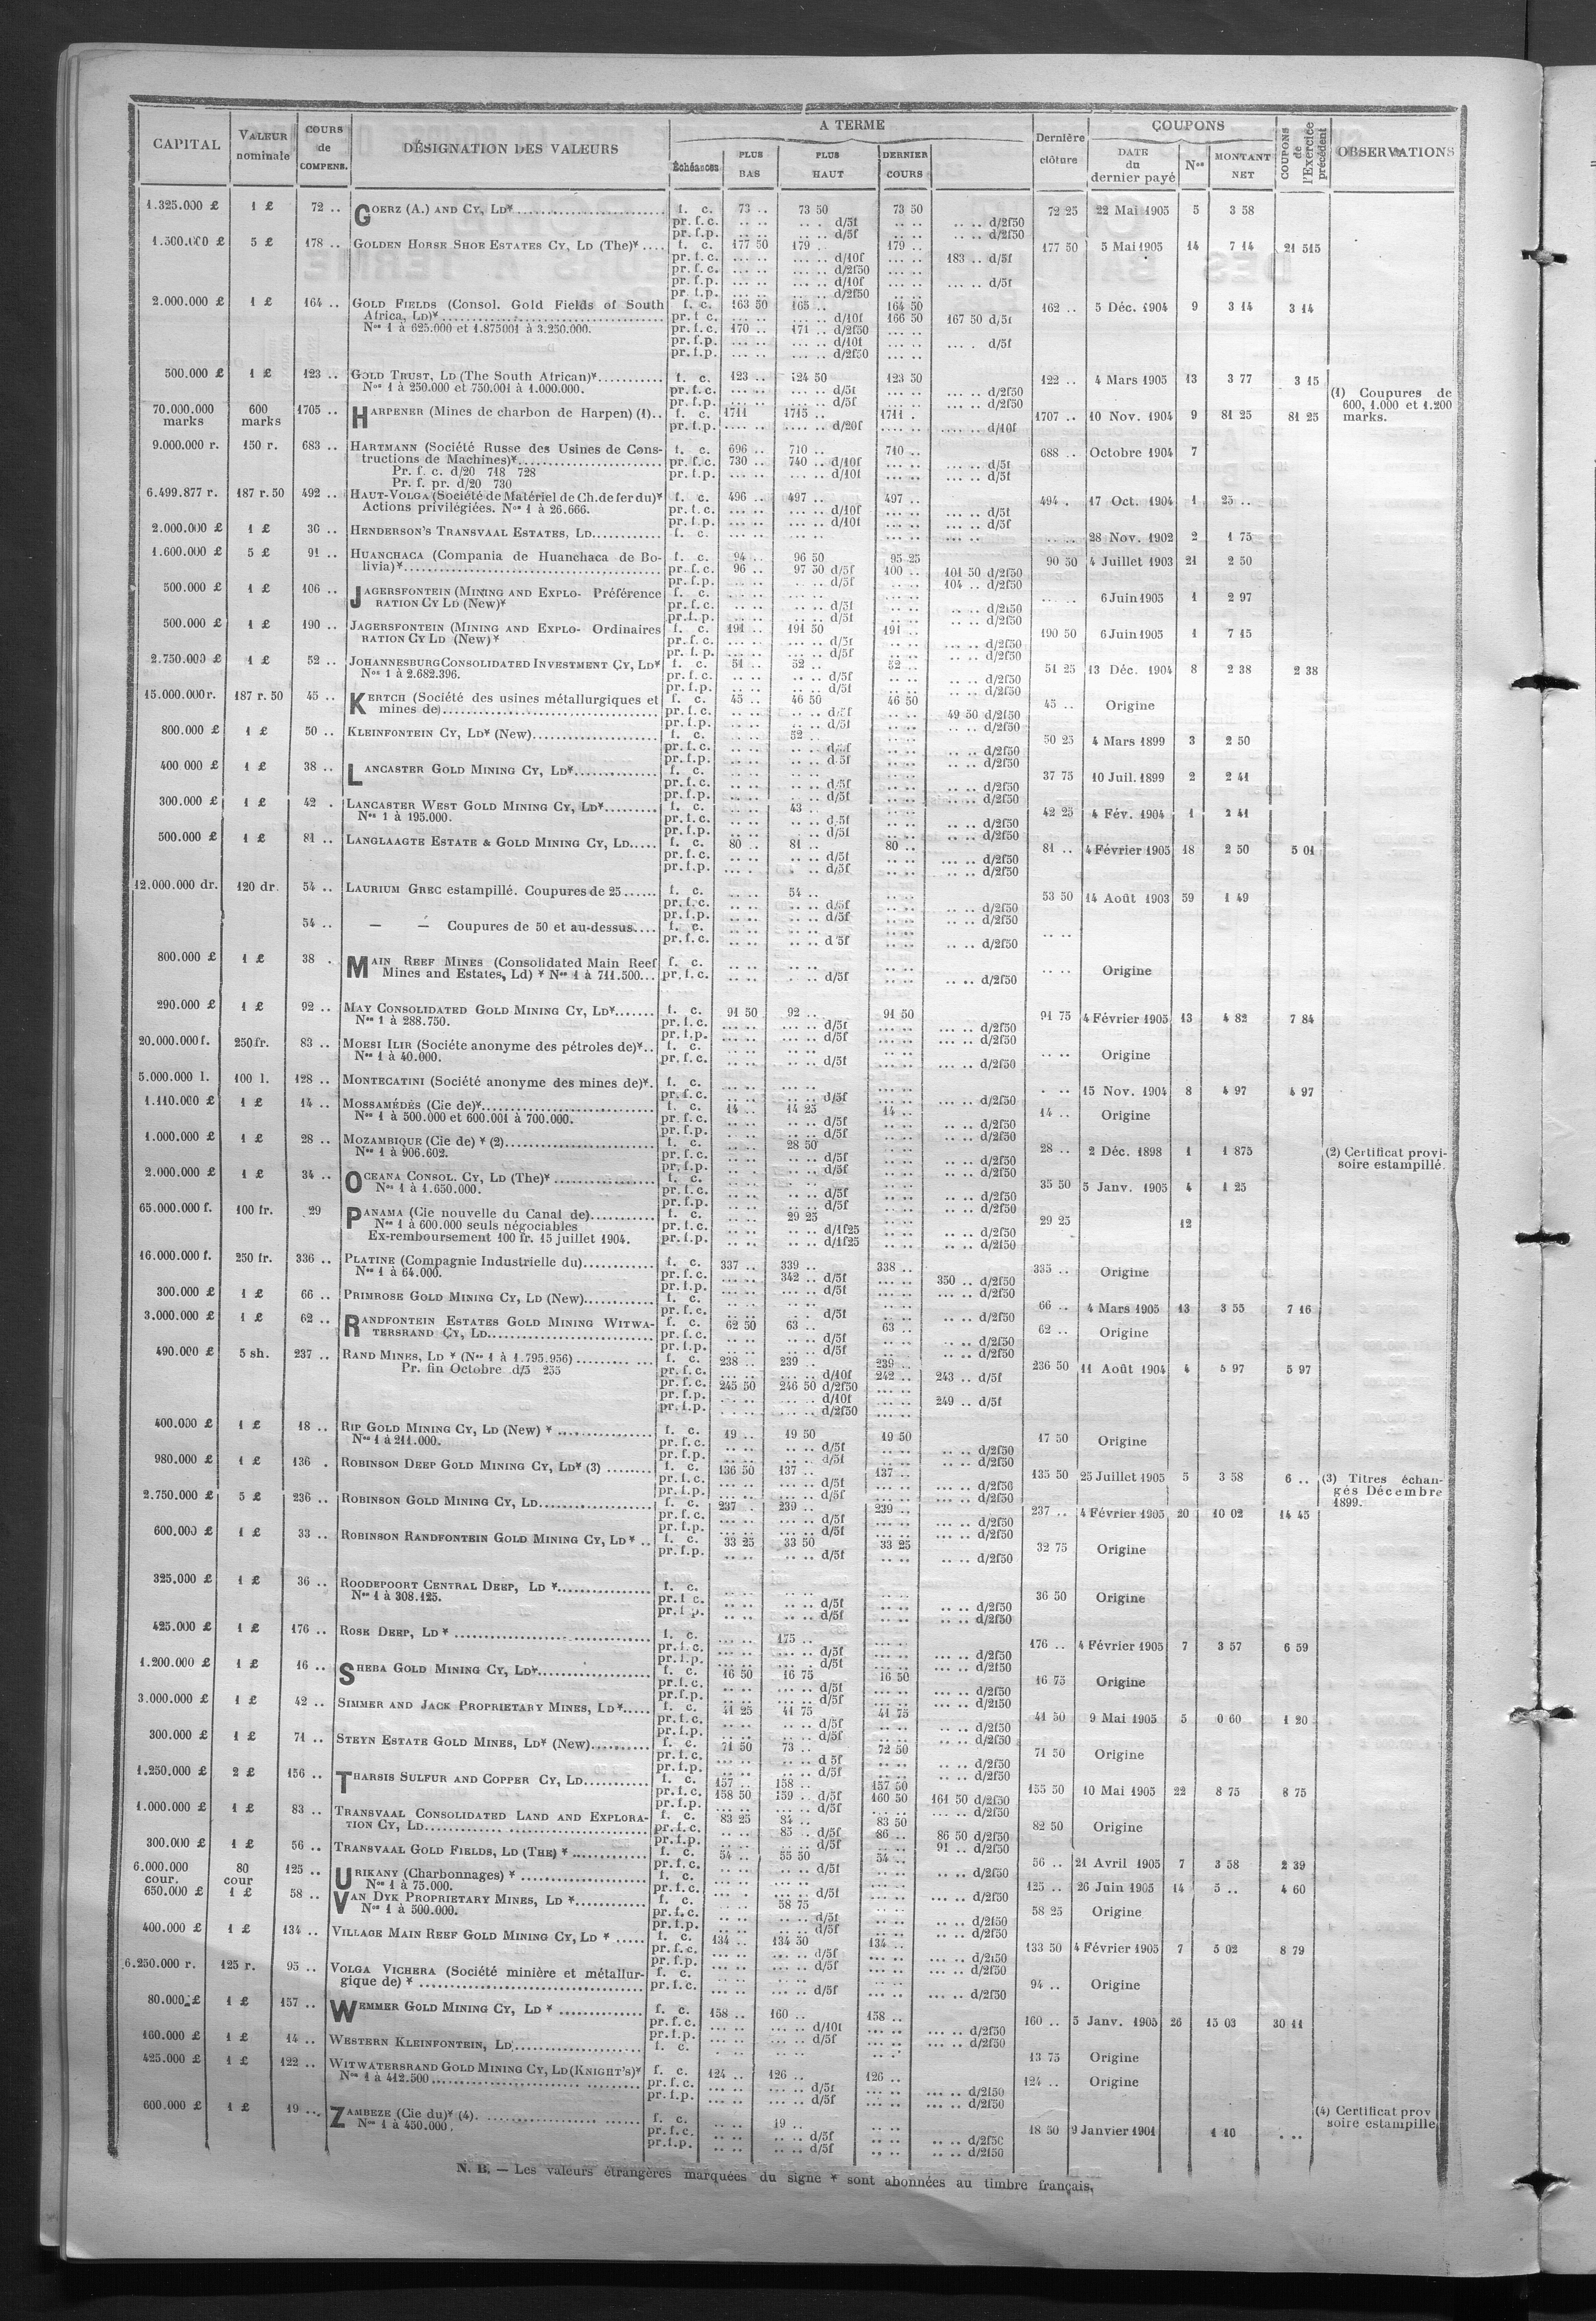 CAPITAL | VALEUR nominale | COURS de COMPENS. | DÉSIGNATION DES VALEURS | A TERME | Dernière clôture | COUPONS | COUPONS de l'Exercice précédent | OBSERVATIONS
Échéances | PLUS BAS | PLUS HAUT | DERNIER COURS | DATE du dernier payé | Nos | MONTANT NET
1.325.000 £ 1 £ 72 .. GOERZ (A.) AND CY, LD* f. c. 73 .. 73 50 73 50 72 25 22 Mai 1905 5 3 58
pr. f. c. .. .. .. . d/5f .. .. .. .. d/2f50
pr. f. p. .. .. .. .. d/5f .. .. .. .. d/2f50
1.500.000 £ 5 £ 178 .. GOLDEN HORSE SHOE ESTATES CY, LD (The)* f. c. 177 50 179 .. 179 .. 177 50 5 Mai 1905 14 7 14 21 515
pr. f. c. ... .. ... .. d/10f ... .. 183 .. d/5f
pr. f. c. ... .. ... .. d/2f50
pr. f. p. ... .. ... .. d/10f ... .. ... .. d/5f
pr. f. p. ... .. ... .. d/2f50
2.000.000 £ 1 £ 164 .. GOLD FIELDS (Consol. Gold Fields of South f. c. 163 50 165 .. 164 50 162 .. 5 Déc. 1904 9 3 14 3 14
Africa, LD)* pr. f. c. ... .. ... .. d/10f 166 50 167 50 d/5f
Nos 1 à 625.000 et 1.875001 à 3.250.000. pr. f. c. 170 .. 171 .. d/2f50
pr. f. p. ... .. ... .. d/10f ... .. ... . d/5f
pr. f. p. ... .. ... .. d/2f50
500.000 £ 1 £ 123 .. GOLD TRUST, LD (The South African)* f. c. 123 .. 124 50 123 50 122 .. 4 Mars 1905 13 3 77 3 15
Nos 1 à 250.000 et 750.001 à 1.000.000. pr. f. c. ... .. ... .. d/5f ... .. ... .. d/2f50
pr. f. p. ... .. ... .. d/5f ... .. ... .. d/2f50
(1) Coupures de 600, 1.000 et 1.200 marks.
70.000.000 marks 600 marks 1705 .. HARPENER (Mines de charbon de Harpen) (1).. f. c. 1711 1715 .. 1711 . 1707 .. 10 Nov. 1904 9 81 25 81 25
pr. f. p. .... .. .... .. d/20f .... .. d/10f
9.000.000 r. 150 r. 683 .. HARTMANN (Société Russe des Usines de Cons- f. c. 696 .. 710 .. 710 .. 688 .. Octobre 1904 7
tructions de Machines)* pr. f. c. 730 .. 740 .. d/10f ... .. ... .. d/5f
Pr. f. c. d/20 718 728 pr. f. p. ... .. ... .. d/10f ... .. ... .. d/5f
Pr. f. pr. d/20 730
6.499.877 r. 187 r. 50 492 .. HAUT-VOLGA (Société de Matériel de Ch. de fer du)* f. c. 496 .. 497 .. 497 .. 494 . 17 Oct. 1904 1 25 ..
Actions privilégiées. Nos 1 à 26.666. pr. f. c. ... .. ... .. d/10f ... .. ... .. d/5f
pr. f. p. ... .. ... .. d/10f ... .. ... .. d/5f
2.000.000 £ 1 £ 30 .. HENDERSON'S TRANSVAAL ESTATES, LD f. c. 28 Nov. 1902 2 1 75
1.600.000 £ 5 £ 91 .. HUANCHACA (Compania de Huanchaca de Bo- f. c. 94 .. 96 50 95 25 90 50 4 Juillet 1903 21 2 50
livia)* pr. f. c. 96 .. 97 50 d/5f 100 .. 101 50 d/2f50
pr. f. p. .. .. .. .. d/5f .. .. 104 .. d/2f50
500.000 £ 1 £ 106 .. JAGERSFONTEIN (MINING AND EXPLO- Préférence f. c. 6 Juin 1905 1 2 97
RATION CY LD (New)* pr. f. c. .. .. .. .. d/5f .. .. .. .. d/2f50
pr. f. p. .. .. .. .. d/5f .. .. .. .. d/2f50
500.000 £ 1 £ 190 .. JAGERSFONTEIN (MINING AND EXPLO- Ordinaires f. c. 191 .. 191 50 191 .. 190 50 6 Juin 1905 1 7 15
RATION CY LD (New)* pr. f. c. ... .. ... .. d/5f ... .. ... .. d/2f50
pr. f. p. ... .. ... .. d/5f ... .. ... .. d/2f50
2.750.000 £ 1 £ 52 .. JOHANNESBURG CONSOLIDATED INVESTMENT CY, LD* f. c. 51 .. 52 .. 52 .. 51 25 13 Déc. 1904 8 2 38 2 38
Nos 1 à 2.682.396. pr. f. c. .. .. .. .. d/5f .. .. .. .. d/2f50
pr. f. p. .. .. .. .. d/5f .. .. .. .. d/2f50
15.000.000 r. 187 r. 50 45 .. KERTCH (Société des usines métallurgiques et f. c. 45 .. 46 50 46 50 45 .. Origine
mines de) pr. f. c. .. .. .. .. d/5f .. .. 49 50 d/2f50
pr. f. p. .. .. .. .. d/5f .. .. .. .. d/2f50
800.000 £ 1 £ 50 .. KLEINFONTEIN CY, LD* (New) f. c. .. .. 52 .. 50 25 4 Mars 1899 3 2 50
pr. f. c. .. .. .. .. d/5f .. .. .. .. d/2f50
pr. f. p. .. .. .. .. d/5f .. .. .. .. d/2f50
400 000 £ 1 £ 38 .. LANCASTER GOLD MINING CY, LD* f. c. 37 75 10 Juil. 1899 2 2 41
pr. f. c. .. .. .. .. d/5f .. .. .. .. d/2f50
pr. f. p. .. .. .. .. d/5f .. .. .. .. d/2f50
300.000 £ 1 £ 42 . LANCASTER WEST GOLD MINING CY, LD* f. c. .. .. 43 .. 42 25 4 Fév. 1904 1 2 41
Nos 1 à 195.000. pr. f. c. .. .. .. .. d/5f .. .. .. .. d/2f50
pr. f. p. .. .. .. .. d/5f .. .. .. .. d/2f50
500.000 £ 1 £ 81 .. LANGLAAGTE ESTATE & GOLD MINING CY, LD f. c. 80 .. 81 .. 80 .. 81 .. 4 Février 1905 18 2 50 5 01
pr. f. c. ... .. ... .. d/5f ... .. ... .. d/2f50
pr. f. p. ... . . ... .. d/5f ... .. ... .. d/2f50
12.000.000 dr. 120 dr. 54 .. LAURIUM GREC estampillé. Coupures de 25 f. c. .. .. 54 .. 53 50 14 Août 1903 59 1 49
pr. f. c. .. .. .. .. d/5f .. .. .. .. d/2f50
pr. f. p. .. .. .. .. d/5f .. .. .. .. d/2f50
54 .. — — Coupures de 50 et au-dessus f. c.
pr. f. c. .. .. .. .. d/5f .. .. .. .. d/2f50
800.000 £ 1 £ 38 . MAIN REEF MINES (Consolidated Main Reef f. c. Origine
Mines and Estates, Ld) * Nos 1 à 711.500 pr. f. c. .. .. .. . d/5f .. .. .. .. d/2f50
290.000 £ 1 £ 92 .. MAY CONSOLIDATED GOLD MINING CY, LD* f. c. 91 50 92 .. 91 50 91 75 4 Février 1905 13 4 82 7 84
Nos 1 à 288.750. pr. f. c. ... .. ... .. d/5f ... .. ... .. d/2f50
pr. f. p. ... .. ... .. d/5f ... .. ... .. d/2f50
20.000.000 f. 250 fr. 83 .. MOESI ILIR (Sociéte anonyme des pétroles de)* f. c. Origine
Nos 1 à 40.000. pr. f. c. .. .. .. .. d/5f .. .. .. .. d/2f50
5.000.000 l. 100 l. 128 .. MONTECATINI (Société anonyme des mines de)* f. c. 15 Nov. 1904 8 4 97 4 97
pr. f. c. ... .. ... .. d/5f ... .. ... .. d/2f50
1.110.000 £ 1 £ 14 .. MOSSAMÉDÈS (Cie de)* f. c. 14 .. 14 25 14 .. 14 .. Origine
Nos 1 à 500.000 et 600.001 à 700.000. pr. f. c. .. .. .. .. d/5f .. .. .. .. d/2f50
pr. f. p. .. .. .. .. d/5f .. .. .. .. d/2f50
1.000.000 £ 1 £ 28 .. MOZAMBIQUE (Cie de) * (2) f. c. .. .. 28 50 28 .. 2 Déc. 1898 1 1 875 (2) Certificat provi-
Nos 1 à 906.602. pr. f. c. .. .. .. .. d/5f .. .. .. .. d/2f50 soire estampillé.
pr. f. p. .. .. .. .. d/5f .. .. .. .. d/2f50
2.000.000 £ 1 £ 34 .. OCEANA CONSOL. CY, LD (The)* f. c. 35 50 5 Janv. 1905 4 1 25
Nos 1 à 1.650.000. pr. f. c. .. .. .. .. d/5f .. .. .. .. d/2f50
pr. f. p. .. .. .. .. d/5f .. .. .. .. d/2f50
65.000.000 f. 100 fr. 29 PANAMA (Cie nouvelle du Canal de) f. c. .. .. 29 25 29 25 12
Nos 1 à 600.000 seuls négociables pr. f. c. .. .. .. .. d/1f25 .. .. .. .. d/2f50
Ex-remboursement 100 fr. 15 juillet 1904. pr. f. p. .. .. .. .. d/1f25 .. .. .. .. d/2f50
16.000.000 f. 250 fr. 336 .. PLATINE (Compagnie Industrielle du) f. c. 337 .. 339 .. 338 .. 335 .. Origine
Nos 1 à 64.000. pr. f. c. ... .. 342 .. d/5f ... .. 350 .. d/2f50
pr. f. p. ... .. ... .. d/5f ... .. ... .. d/2f50
300.000 £ 1 £ 66 .. PRIMROSE GOLD MINING CY, LD (New) f. c. 66 .. 4 Mars 1905 13 3 55 7 16
pr. f. c. .. .. .. .. d/5f .. .. .. .. d/2f50
3.000.000 £ 1 £ 62 .. RANDFONTEIN ESTATES GOLD MINING WITWA- f. c. 62 50 63 .. 63 .. 62 .. Origine
TERSRAND CY, LD pr. f. c. .. .. .. .. d/5f .. .. .. .. d/2f50
pr. f. p. .. .. .. .. d/5f .. .. .. .. d/2f50
490.000 £ 5 sh. 237 .. RAND MINES, LD * (Nos 1 à 1.795.956) f. c. 238 .. 239 .. 239 .. 236 50 11 Août 1904 4 5 97 5 97
Pr. fin Octobre d/5 255 pr. f. c. ... .. ... .. d/10f 242 .. 243 .. d/5f
pr. f. c. 245 50 246 50 d/2f50
pr. f. p. ... .. ... .. d/10f ... .. 249 .. d/5f
pr. f. p. ... .. ... .. d/2f50
400.000 £ 1 £ 18 .. RIP GOLD MINING CY, LD (New) * f. c. 19 .. 19 50 19 50 17 50 Origine
Nos 1 à 211.000. pr. f. c. .. .. .. .. d/5f .. .. .. .. d/2f50
pr. f. p. .. .. .. .. d/5f .. .. .. .. d/2f50
980.000 £ 1 £ 136 . ROBINSON DEEP GOLD MINING CY, LD* (3) f. c. 136 50 137 .. 137 .. 135 50 25 Juillet 1905 5 3 58 6 .. (3) Titres échan-
pr. f. c. ... .. ... .. d/5f ... .. ... .. d/2f50 gés Décembre
pr. f. p. ... .. ... .. d/5f ... .. ... .. d/2f50 1899.
2.750.000 £ 5 £ 236 .. ROBINSON GOLD MINING CY, LD f. c. 237 .. 239 .. 239 .. 237 .. 4 Février 1905 20 10 02 14 45
pr. f. c. ... .. ... .. d/5f ... .. ... .. d/2f50
pr. f. p. ... .. ... .. d/5f ... .. ... .. d/2f50
600.000 £ 1 £ 33 .. ROBINSON RANDFONTEIN GOLD MINING CY, LD * f. c. 33 25 33 50 33 25 32 75 Origine
pr. f. p. .. .. .. .. d/5f .. .. .. .. d/2f50
325.000 £ 1 £ 36 .. ROODEPOORT CENTRAL DEEP, LD * f. c. 36 50 Origine
Nos 1 à 308.125. pr. f. c. .. .. .. .. d/5f .. .. .. .. d/2f50
pr. f. p. .. .. .. .. d/5f .. .. .. .. d/2f50
425.000 £ 1 £ 176 .. ROSE DEEP, LD * f. c. ... .. 175 .. 176 .. 4 Février 1905 7 3 57 6 59
pr. f. c. ... .. ... .. d/5f ... .. ... .. d/2f50
pr. f. p. ... .. ... .. d/5f ... .. ... .. d/2f50
1.200.000 £ 1 £ 16 .. SHEBA GOLD MINING CY, LD* f. c. 16 50 16 75 16 50 16 75 Origine
pr. f. c. .. .. .. .. d/5f .. .. .. .. d/2f50
pr. f. p. .. .. .. .. d/5f .. .. .. .. d/2f50
3.000.000 £ 1 £ 42 .. SIMMER AND JACK PROPRIETARY MINES, LD* f. c. 41 25 41 75 41 75 41 50 9 Mai 1905 5 0 60 1 20
pr. f. c. .. .. .. .. d/5f .. .. .. .. d/2f50
pr. f. p. .. .. .. .. d/5f .. .. .. .. d/2f50
300.000 £ 1 £ 71 .. STEYN ESTATE GOLD MINES, LD* (New) f. c. 71 50 73 .. 72 50 71 50 Origine
pr. f. c. .. .. .. .. d 5f .. .. .. .. d/2f50
pr. f. p. .. .. .. .. d/5f .. .. .. .. d/2f50
1.250.000 £ 2 £ 156 .. THARSIS SULFUR AND COPPER CY, LD f. c. 157 .. 158 .. 157 50 155 50 10 Mai 1905 22 8 75 8 75
pr. f. c. 158 50 159 .. d/5f 160 50 161 50 d/2f50
pr. f. p. ... .. ... .. d/5f ... .. ... .. d/2f50
1.000.000 £ 1 £ 83 .. TRANSVAAL CONSOLIDATED LAND AND EXPLORA- f. c. 83 25 84 .. 83 50 82 50 Origine
TION CY, LD pr. f. c. .. .. 85 .. d/5f 86 .. 86 50 d/2f50
pr. f. p. .. .. .. .. d/5f .. .. 91 .. d/2f50
300.000 £ 1 £ 56 .. TRANSVAAL GOLD FIELDS, LD (THE) * f. c. 54 .. 55 50 54 .. 56 .. 21 Avril 1905 7 3 58 2 39
pr. f. c. .. .. .. .. d/5f .. .. .. .. d/2f50
6.000.000 cour. 80 cour 125 .. URIKANY (Charbonnages) * f. c. 125 .. 26 Juin 1905 14 5 .. 4 60
Nos 1 à 75.000. pr. f. c. ... . ... .. d/5f ... .. ... .. d/2f50
650.000 £ 1 £ 58 .. VAN DYK PROPRIETARY MINES, LD * f. c. .. .. 58 75 58 25 Origine
Nos 1 à 500.000. pr. f. c. .. .. .. .. d/5f .. .. .. .. d/2f50
pr. f. p. .. .. .. .. d/5f .. .. .. .. d/2f50
400.000 £ 1 £ 134 .. VILLAGE MAIN REEF GOLD MINING CY, LD * f. c. 134 .. 134 50 134 .. 133 50 4 Février 1905 7 5 02 8 79
pr. f. c. ... .. ... .. d/5f ... .. ... .. d/2f50
pr. f. p. ... .. ... .. d/5f ... .. ... .. d/2f50
6.250.000 r. 125 r. 95 .. VOLGA VICHERA (Société minière et métallur- f. c. 94 .. Origine
gique de) * pr. f. c. ... .. ... .. d/5f ... .. ... .. d/2f50
80.000 £ 1 £ 157 .. WEMMER GOLD MINING CY, LD * f. c. 158 .. 160 .. 158 .. 160 .. 5 Janv. 1905 26 15 03 30 11
pr. f. c. ... .. ... .. d/10f ... .. ... .. d/2f50
pr. f. p. ... .. ... .. d/5f ... .. ... .. d/2f50
160.000 £ 1 £ 14 .. WESTERN KLEINFONTEIN, LD f. c. 13 75 Origine
425.000 £ 1 £ 122 .. WITWATERSRAND GOLD MINING CY, LD (KNIGHT'S)* f. c. 124 .. 126 .. 126 .. 124 .. Origine
Nos 1 à 412.500 pr. f. c. ... .. ... .. d/5f ... .. ... .. d/2f50
pr. f. p. ... .. ... .. d/5f ... .. ... .. d/2f50
600.000 £ 1 £ 19 .. ZAMBEZE (Cie du)* (4) f. c. .. .. 19 .. 18 50 9 Janvier 1901 1 10 (4) Certificat prov
Nos 1 à 450.000. pr. f. c. .. .. .. .. d/5f .. .. .. .. d/2f50 soire estampille
pr. f. p. .. .. .. .. d/5f .. .. .. .. d/2f50
N. B. — Les valeurs étrangères marquées du signe * sont abonnées au timbre français.